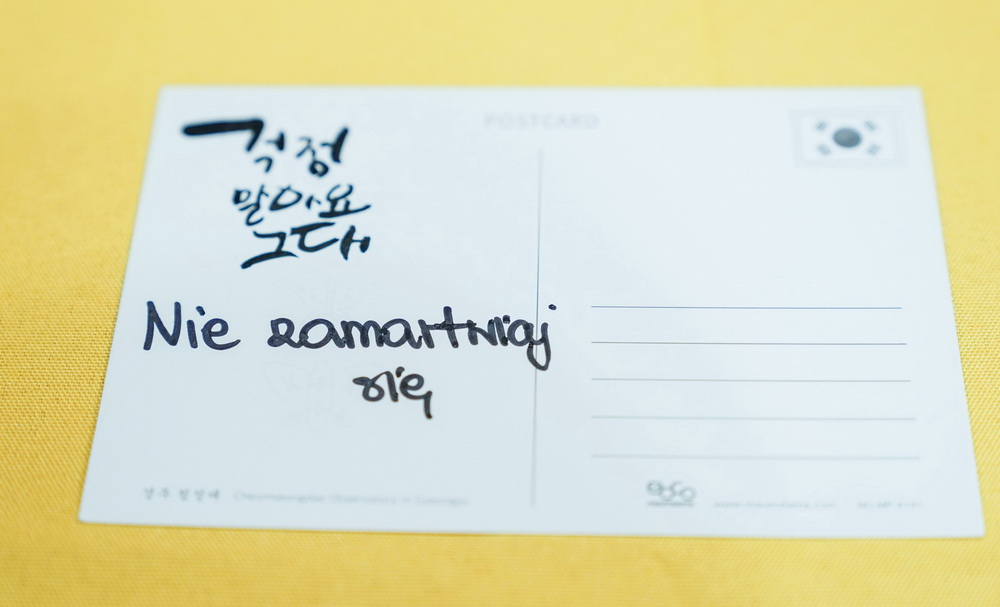 POSTCARD
걱정
말아요
그대
Nie zamartwiaj
się
경주 첨성대 Cheomseongdae Observatory in Gyeongju